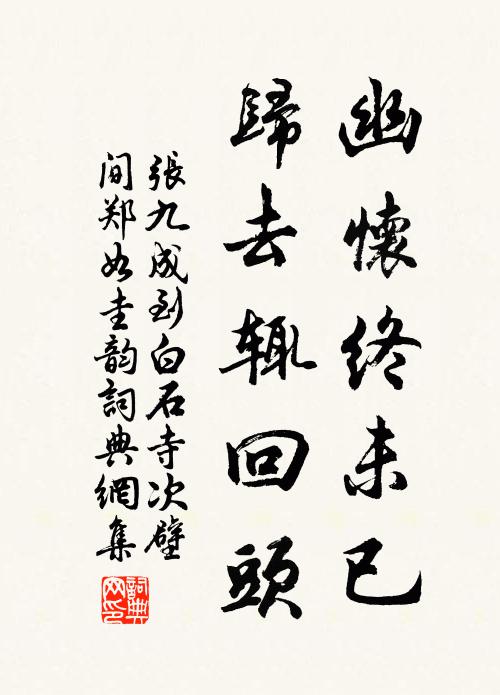 幽懷終未已
歸去辄回頭
張九成到白石寺次壁
间郑如圭韵詞典網集
詞典网印